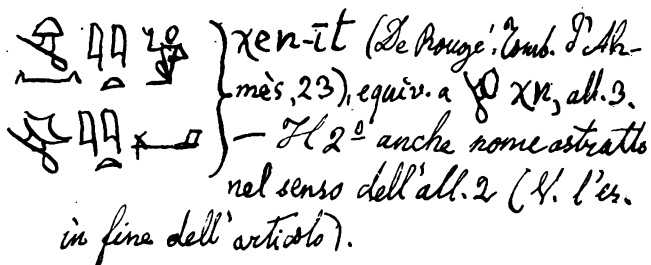 χen-īt (De Rougé. Tomb. d'Ah-
mès, 23), equiv. a χn, all. 3.
— Il 2º anche nome astratto
nel senso dell'all. 2 (V. l'es.
in fine dell'articolo).